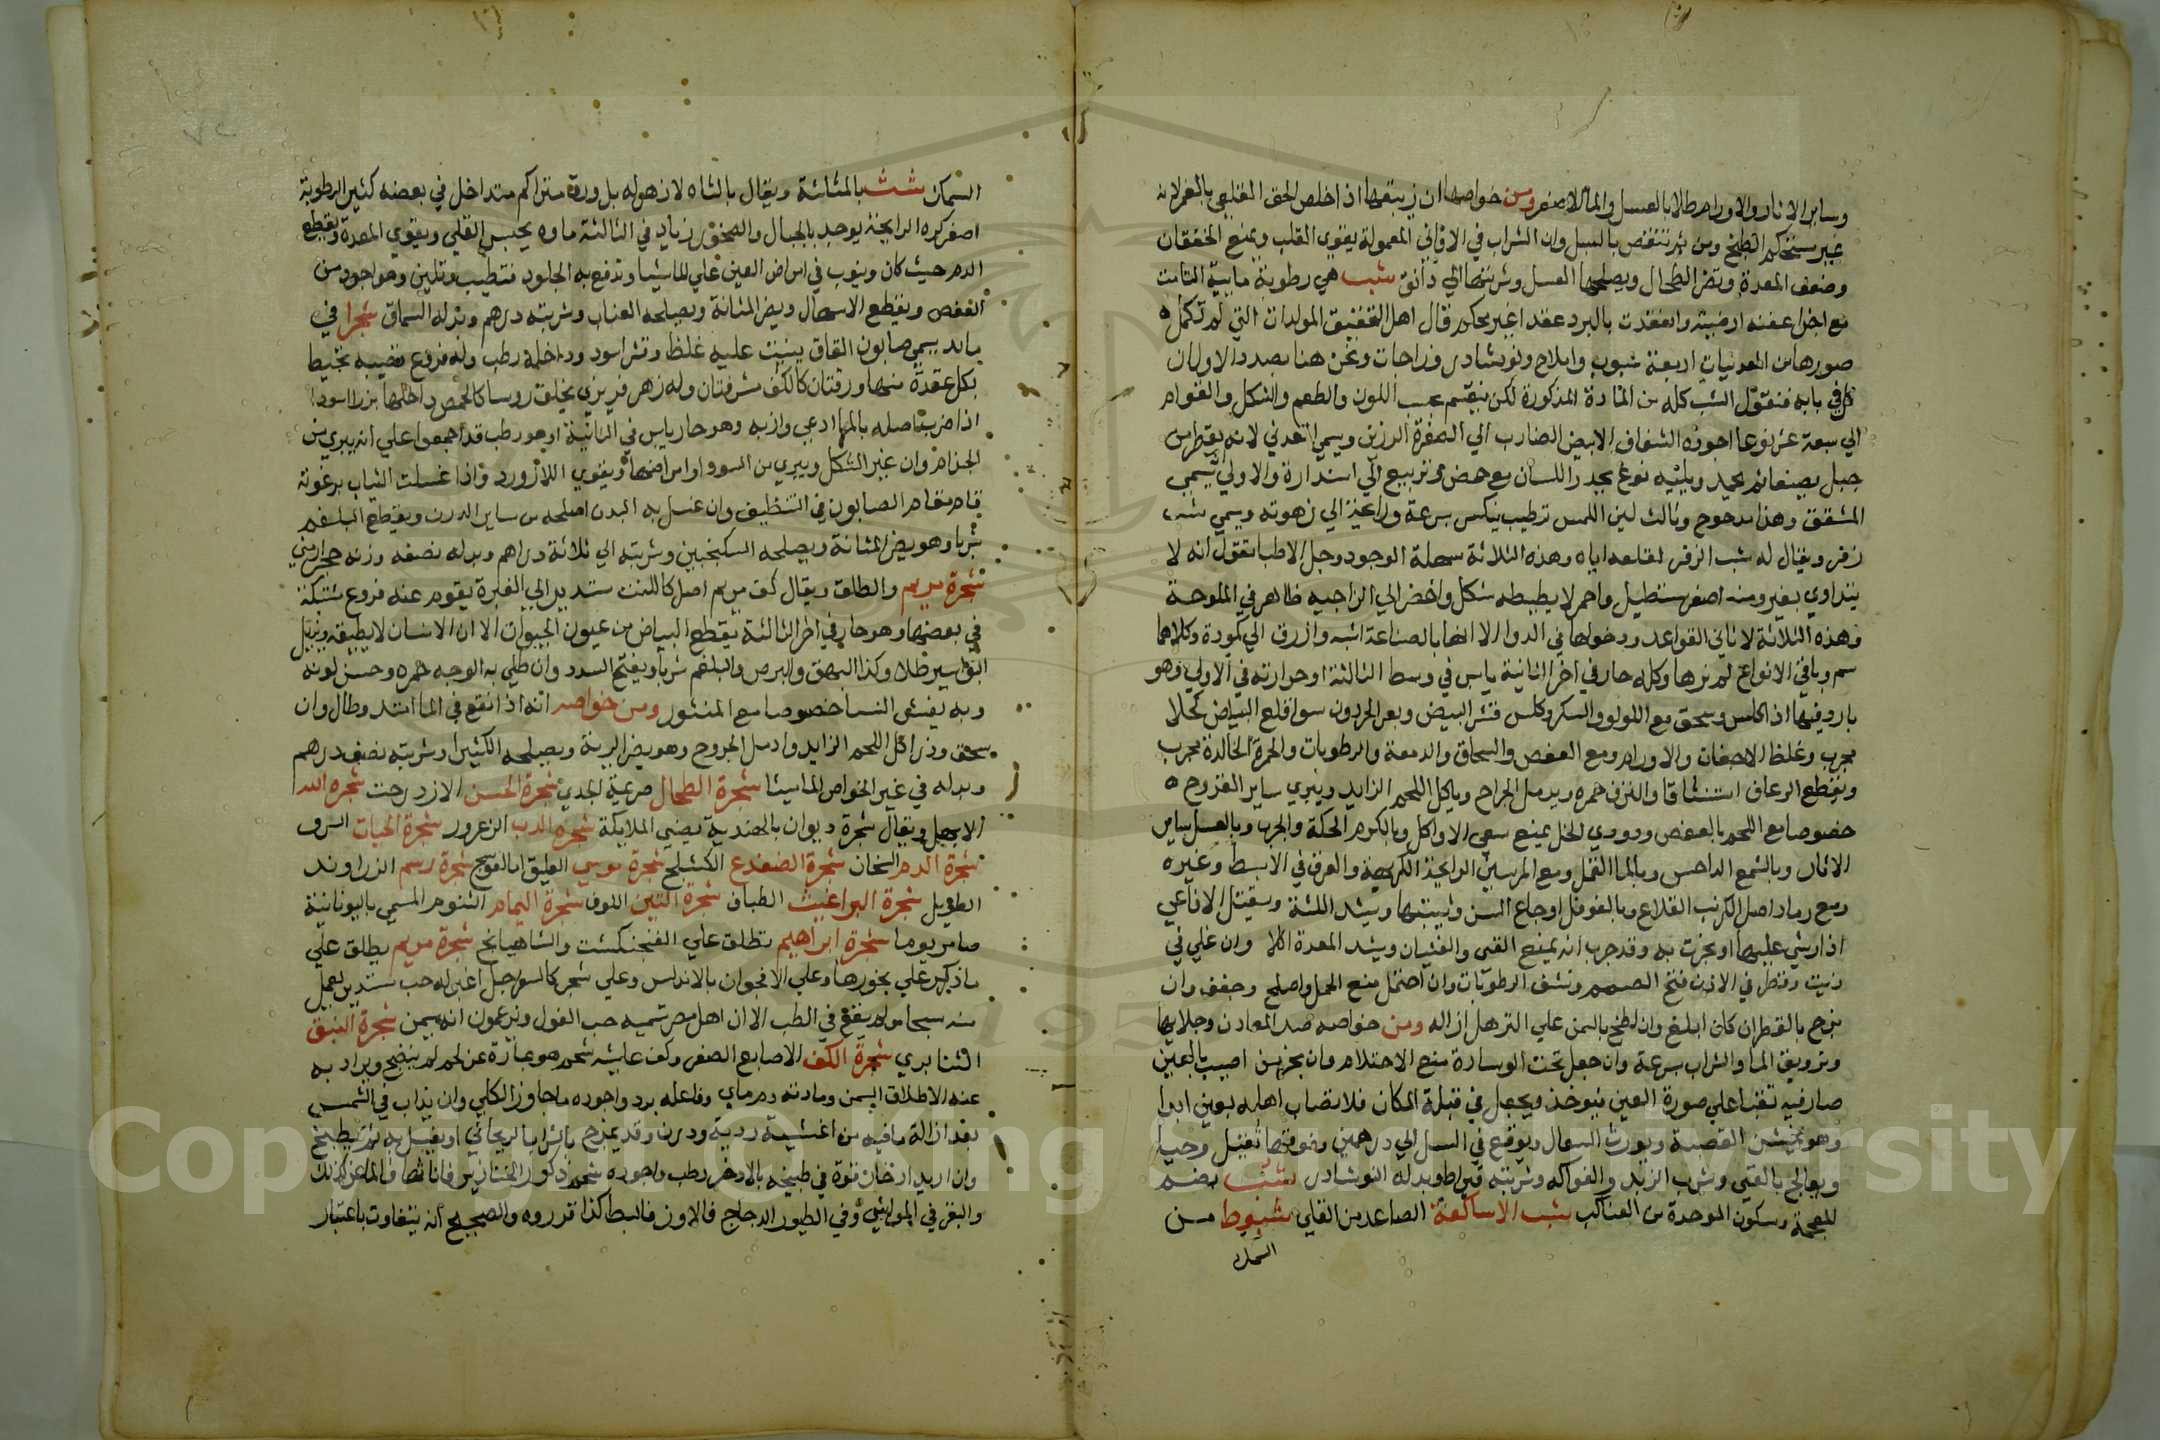 وساير الاثار والاورام طلا بالعسل والما للاصفر ومن خواصها ان زيبقها اذا خلص لحق القلعي بالقمر لانه
غير مستحكم الطبخ ومن ثم ينتقص بالسبك وان الشراب في الاواني المعمولة يقوي القلب ويمنع الخفقان
وضعف المعدة وتضر الطحال ويصلحها العسل وشربتها الي دانق شب هي رطوبة مايية التامت
مع اجزا عفنه ارضية وانعقدت بالبرد عقدا غير محكم قال اهل التحقيق المولدات التي لم تكمل
صورها من المعدنيات اربعة شبوب واملاح ونوشادر وزاجات ونحن هنا بصدد الاول ان
كل في بابه فنقول الشب كله من المادة المذكورة لكن ينقسم بحسب اللون والطعم والشكل والقوام
الي سبعة عشر نوعا اجوده الشفاف الابيض الضارب الي الصفرة الرزين ويسمي اليمني لانه يقطر من
جبل بصنعا ثم يجمد ويليه نوع يحذر اللسان مع حمض وتربيع الي استدارة والاول يسمي
المشقق وهذا المدحرج وثالث لين اللمس رطيب ينكسر بسرعة ورايحة الي زهوته ويسمي شب
زفر ويقال له شب الزفر لقلعه اياه وهذه الثلاثة سهلة الوجود وجل الاطبا تقول انه لا
يتداوي بغير ومنه اصفر مستطيل واحمر لا يطبطه شكل واخضر الي الزاجيه ظاهر في الملوحة
وهذه الثلاثة لا تاتي القواعد ودخولها في الدوا الا انها بالصناعة اشبه وازرق الي كمودة وكلاهما
سم وباقي الانواع لم نرها وكله حار في اخر الثانية يابس في وسط الثالثة او حرارته في الاولي وهو
بارد فيها اذا كلس وسحق مع اللولو والسكر وكلس قشر البيض وبعر الحردون سوا قلع البياض كحلا
مجرب وغلظ الاجفان والاورام ومع العفص والسماق والدمعة والرطوبات والحمرة الخالدة مجرب
ويقطع الرعاف استنشاقا والنزف حمره ويدمل الجراح وياكل اللحم الزايد ويبري ساير القروح
خصوصا مع اللحم بالعفص ودردي الخل يمنع سعي الاواكل وبالكرم الحكة والجرب وبالعسل ساير
الاثار وبالشمع الداحس وبالما القمل ومع المرسين الرايحة الكريهة والعرق في الابط وغيره
ومع رماد اصل الكرنب القلاع وبالفوفل اوجاع السن ويثبتها ويشد اللثة ويقتل الافاعي
اذا رش عليها او بخرت به وقد جرب انه يمنع القي والغثيان ويشد المعدة اكلا وان غلي في
زيت وقطر في الاذن فتح الصمم ونشف الرطوبات وان احتمل منع الحمل واصلح وجفف وان
مزج بالقطران كان ابلغ وان لطخ بالسمن علي الترهل ازاله ومن خواصه صبغ المعادن وجلايها
وترويق الما والشراب بسرعة وان جعل تحت الوسادة منع الاحتلام وان بخر من اصيب بالعين
صار فيه ثقبا علي صورة العين فيوخذ ويجعل في قبلة المكان فلا تصاب اهله بعين ابدا
وهو يخشن القصبة ويورث السعال ويوقع في السل الي درهمين وفوقها تقتل وحيا
ويعالج بالقي وشرب الزبد والفواكه وشربته قيراط وبدله النوشادر شبث بضم
المعجمة وسكون الموحدة من العناكب شب الاساكفة الصاعد من القلي شبوط من
السمك
السمك شث بالمثلثة ويقال بالتاه لا زهر له بل ورق متراكم متداخل في بعضه كثير الرطوبة
اصفر كره الرايحة يوجد بالجبال والصخور زياد في الثالثة ماوه يحبس القي ويقوي المعدة ويقطع
الدم حيث كان وينوب في امراض العين علي الماميثا وتدفع به الجلود فتطيب وتلين وهو اجود من
العفص ويقطع الاسهال ويضر المثانة ويصلحه العناب وشربته درهم وبدله السماق شجرا في
بابد يسمي صابون القاق ينبت عليه غلظ وقشر اسود وداخله رطب وله فروع قضيبه تحيط
بكل عقدة منها ورقتان كالكف مشرفتان وله زهر فرفيري يخلف روسا كالحمص داخلها بزر اسود
اذا ضرب اصله بالما ارغي وازبد وهو حار يابس في الثانية او هو رطب قد اجمعوا علي انه يبري من
الجذام وان غير الشكل ويبري من السودا وامراضها ويقوي اللازورد واذا غسلت الثياب برغوته
قام مقام الصابون في التنظيف وان غسل به البدن اصلحه من ساير الدرن ويقطع البلغم
شربا وهو يضر المثانة ويصلحه السكنجبين وشربته الي ثلاثة دراهم وبدله نصفه وزنه حجر ارمني
شجرة مريم والطلق ويقال كف مريم اصل كاللفت مستدير الي الغبرة يقوم عنه فروع مشتبكة
في بعضها وهو حار في اخر الثالثة يقطع البياض من عيون الحيوان الا ان الانسان لا يطيقه ويزيل
البواسير طلا وكذا البهق والبرص والبلغم شربا ويفتح السدد وان طلي به الوجه حمره وحسن لونه
وبه يغش النسا خصوصا مع المنثور ومن خواصه انه اذا انقع في الما امتد وطال وان
سحق وذر اكل اللحم الزايد وادمل الجروح وهو يضر الرية ويصلحه الكثيرا وشربته نصف درهم
وبدله في غير الخواص الماميثا شجرة الطحال صريمة الجدي شجرة الحسن الازدرخت شجره الله
الابهل ويقال شجرة ديوان بالهندية يعني الملايكة شجره الدب الزعرور شجرة الحيات السرو
شجرة الدم الشخان شجرة الضفدع الكشلج شجرة موسي العليق او العوسج شجرة رستم الزراوند
الطويل شجرة البراغيث الطباق شجرة التنين اللوف شجرة اليمام التنوم المسمي باليونانية
صامر يوما شجرة ابراهيم تطلق علي الفنجنكشت والشاهبانج شجرة مريم يطلق علي
ما ذكر وعلي بخورها وعلي الاقحوان بالاندلس وعلي شجر كالسفرجل اغبر له حب مستدير يعمل
منه سبحا ولم يقع في الطب الا ان اهل مصر تسميه حب الغول ويزعمون انه يسمن شجرة البق
الشنا بري شجرة الكف الاصابع الصفر وكف عايشه شحم هو عبارة عن لحم لم ينضج ويراد به
عند الاطلاق السمن ومادته دم ماي وفاعله برد واجوده ما جاوز الكلي وان يذاب في الشمس
بعد ازالة ما فيه من اغشية ردية ودرن وقد يمزج بالشراب الريحاني او يغسل به ثم يطبخ
وان اريد ادخان قوة في طبيخه بالاذخر رطب واجوده شحم ذكور الخنازير فاناثها فالماعز كذلك
والبقر في المواشي وفي الطيور الدجاج فالاوز فالبط كذا قرروه والصحيح انه يتفاوت باعتبار
Copyright © King Saud University
1957